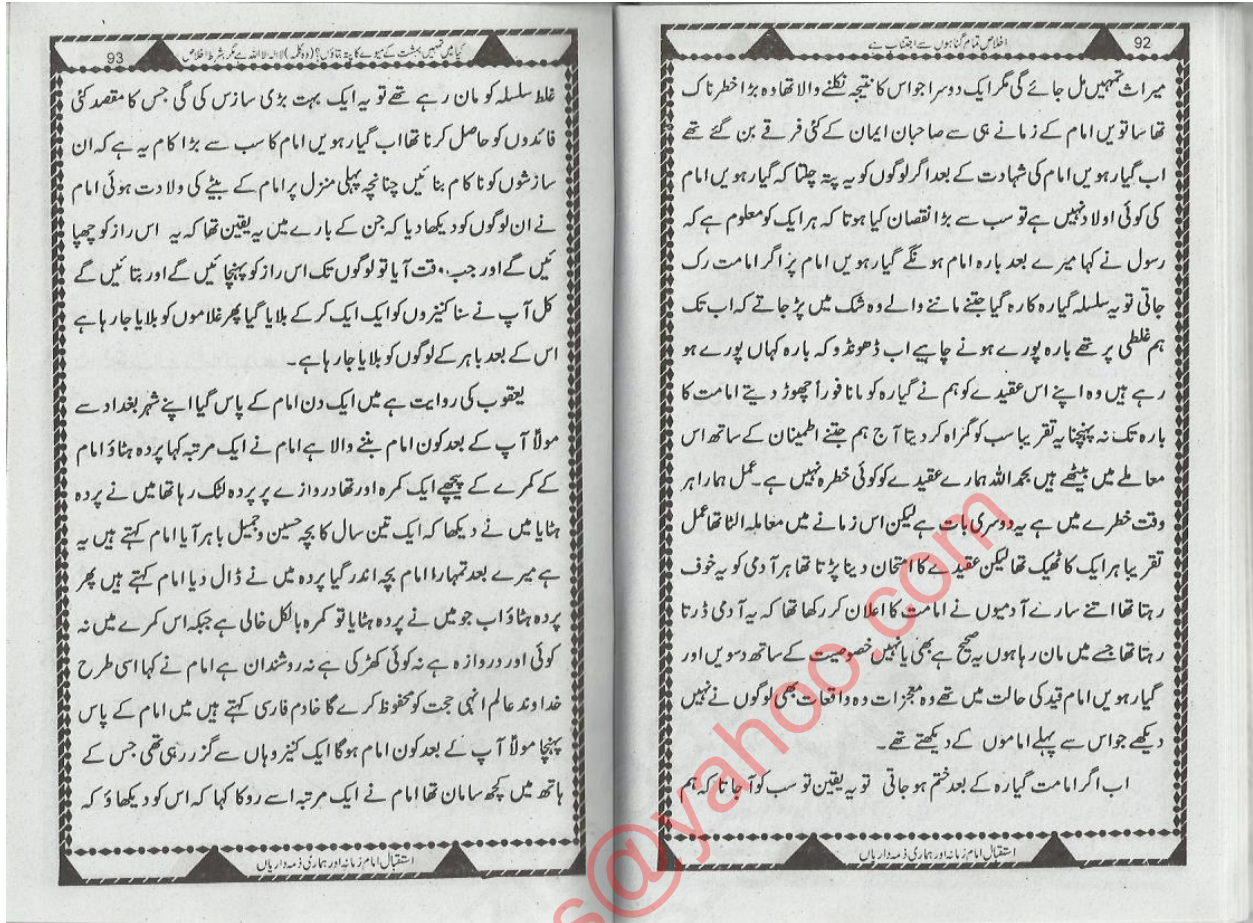 92
اخلاص تمام گناہوں سے اجتناب ہے
میراث تمہیں مل جائے گی مگر ایک دوسرا جو اس کا نتیجہ نکلنے والا تھا وہ بڑا خطرناک
تھا ساتویں امام کے زمانے ہی سے صاحبان ایمان کے کئی فرقے بن گئے تھے
اب گیارہویں امام کی شہادت کے بعد اگر لوگوں کو یہ پتہ چلتا کہ گیارہویں امام
کی کوئی اولاد نہیں ہے تو سب سے بڑا نقصان کیا ہوتا کہ ہر ایک کو معلوم ہے کہ
رسول نے کہا میرے بعد بارہ امام ہونگے گیارہویں امام پر اگر امامت رک
جاتی تو یہ سلسلہ گیارہ کا رہ گیا جتنے ماننے والے وہ شک میں پڑ جاتے کہ اب تک
ہم غلطی پر تھے بارہ پورے ہونے چاہیے اب ڈھونڈو کہ بارہ کہاں پورے ہو
رہے ہیں وہ اپنے اس عقیدے کو ہم نے گیارہ کو مانا فوراً چھوڑ دیتے امامت کا
بارہ تک نہ پہنچنا یہ تقریبا سب کو گمراہ کر دیتا آج ہم جتنے اطمینان کے ساتھ اس
معاملے میں بیٹھے ہیں بحمد اللہ ہمارے عقیدے کو کوئی خطرہ نہیں ہے۔ عمل ہمارا ہر
وقت خطرے میں ہے یہ دوسری بات ہے لیکن اس زمانے میں معاملہ الٹا تھا عمل
تقریبا ہر ایک کا ٹھیک تھا لیکن عقیدے کا امتحان دینا پڑتا تھا ہر آدمی کو یہ خوف
رہتا تھا اتنے سارے آدمیوں نے امامت کا اعلان کر رکھا تھا کہ یہ آدمی ڈرتا
رہتا تھا جسے میں مان رہا ہوں یہ صحیح ہے بھی یا نہیں خصوصیت کے ساتھ دسویں اور
گیارہویں امام قید کی حالت میں تھے وہ معجزات وہ واقعات بھی لوگوں نے نہیں
دیکھے جو اس سے پہلے اماموں کے دیکھتے تھے۔
اب اگر امامت گیارہ کے بعد ختم ہو جاتی تو یہ یقین تو سب کو آ جاتا کہ ہم
استقبال امام زمانہ اور ہماری ذمہ داریاں
93
کیا میں تمہیں بہشت کے میوے کا پتہ بتاؤں؟ (وہ کلمہ) لا الہ الا اللہ ہے مگر بشرط اخلاص
غلط سلسلہ کو مان رہے تھے تو یہ ایک بہت بڑی سازس کی گی جس کا مقصد کئی
فائدوں کو حاصل کرنا تھا اب گیارہویں امام کا سب سے بڑا کام یہ ہے کہ ان
سازشوں کو ناکام بنائیں چنانچہ پہلی منزل پر امام کے بیٹے کی ولادت ہوئی امام
نے ان لوگوں کو دیکھا دیا کہ جن کے بارے میں یہ یقین تھا کہ یہ اس راز کو چھپا
ئیں گے اور جب وقت آیا تو لوگوں تک اس راز کو پہنچائیں گے اور بتائیں گے
کل آپ نے سنا کنیزوں کو ایک ایک کر کے بلایا گیا پھر غلاموں کو بلایا جا رہا ہے
اس کے بعد باہر کے لوگوں کو بلایا جا رہا ہے۔
یعقوب کی روایت ہے میں ایک دن امام کے پاس گیا اپنے شہر بغداد سے
مولاؑ آپ کے بعد کون امام بننے والا ہے امام نے ایک مرتبہ کہا پردہ ہٹاؤ امام
کے کمرے کے پیچھے ایک کمرہ اور تھا دروازے پر پردہ لٹک رہا تھا میں نے پردہ
ہٹایا میں نے دیکھا کہ ایک تین سال کا بچہ حسین و جمیل باہر آیا امام کہتے ہیں یہ
ہے میرے بعد تمہارا امام بچہ اندر گیا پردہ میں نے ڈال دیا امام کہتے ہیں پھر
پردہ ہٹاؤ اب جو میں نے پردہ ہٹایا تو کمرہ بالکل خالی ہے جبکہ اس کمرے میں نہ
کوئی اور دروازہ ہے نہ کوئی کھڑکی ہے نہ روشندان ہے امام نے کہا اسی طرح
خداوند عالم اپنی حجت کو محفوظ کرے گا خادم فارسی کہتے ہیں میں امام کے پاس
پہنچا مولاؑ آپ کے بعد کون امام ہوگا ایک کنیز وہاں سے گزر رہی تھی جس کے
ہاتھ میں کچھ سامان تھا امام نے ایک مرتبہ اسے روکا کہا کہ اس کو دیکھاؤ کہ
استقبال امام زمانہ اور ہماری ذمہ داریاں
s@yahoo.com